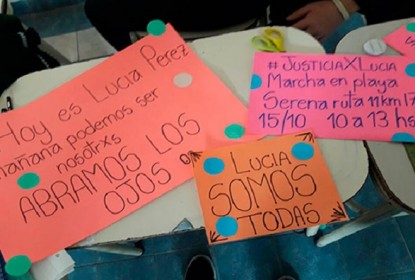 Hoy es Lucia Perez
mañana podemos ser
nosotrxs
ABRAMOS LOS
OJOS
#JUSTICIAXLUCIA
Marcha en playa
Serena ruta 11 km 17
15/10 10 a 13 hs
LUCIA
SOMOS
TODAS